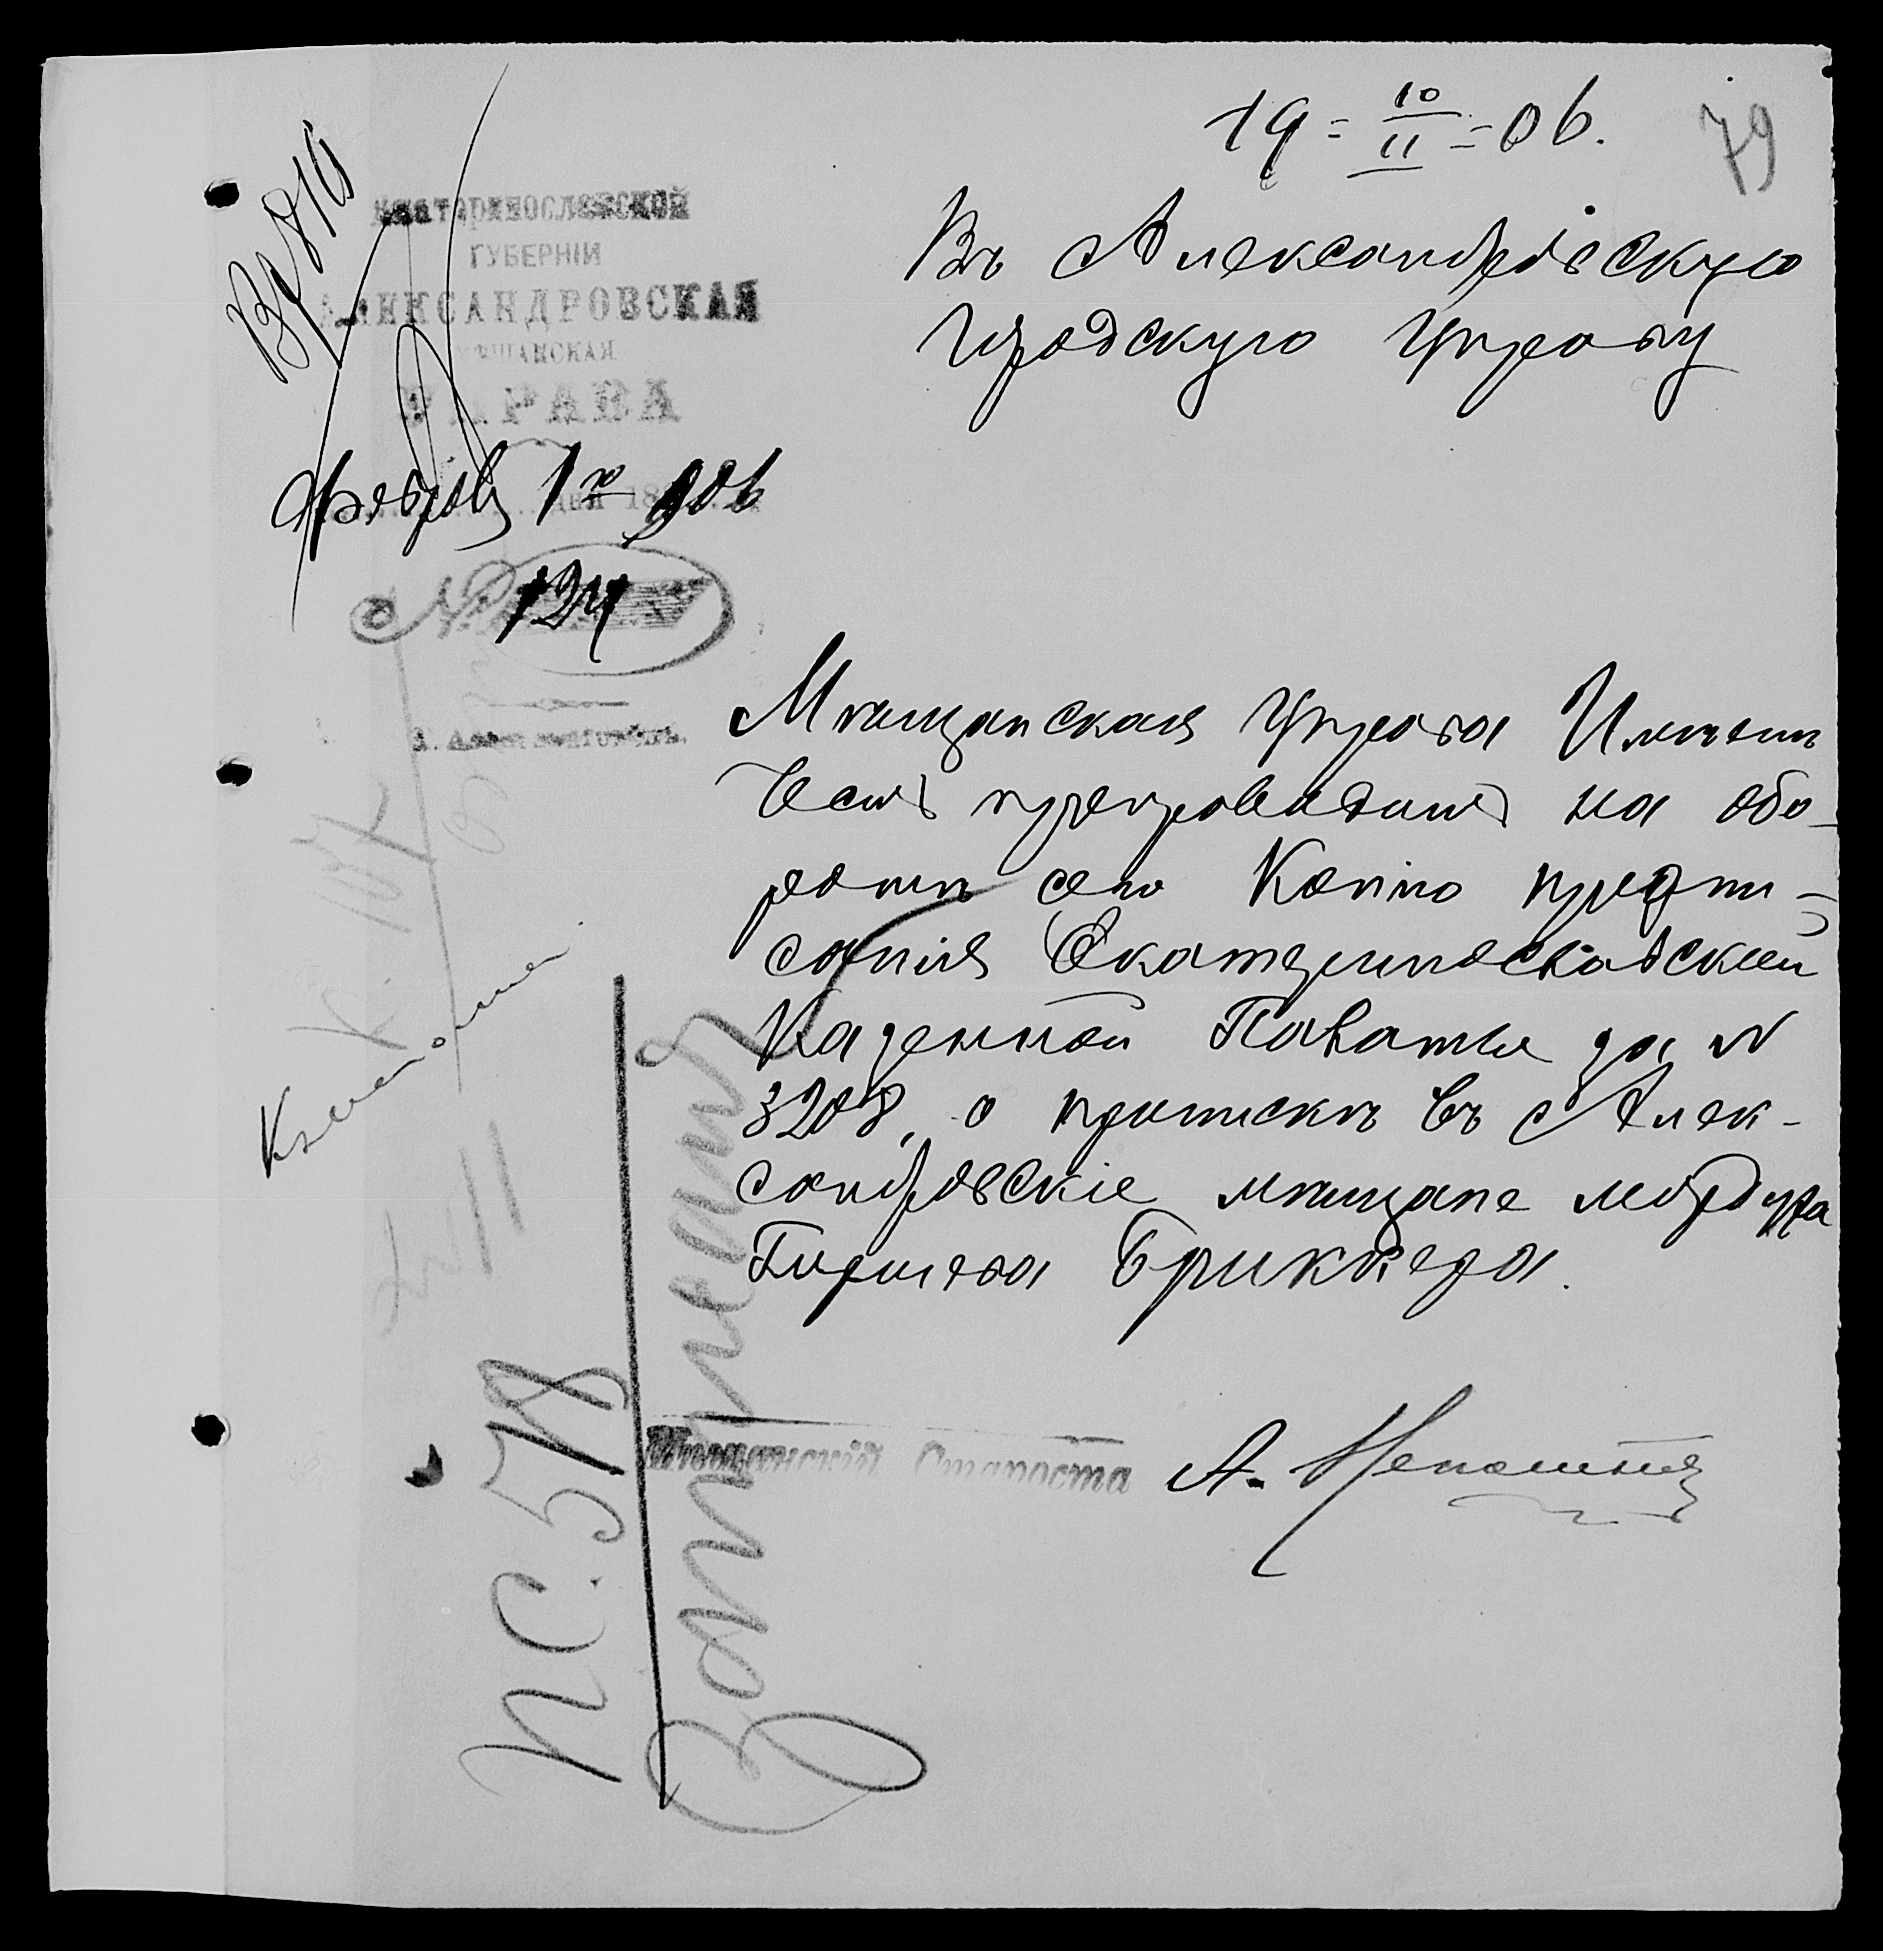 19 = 10/II = 06.
79
Вх 810
Екатеринославской
ГУБЕРНІИ
АЛЕКСАНДРОВСКАЯ
МѢЩАНСКАЯ
УПРАВА
Февраля 1го 906
№ 124
г. Александровскъ.
Въ Александровскую
Городскую Управу
Мѣщанская Управа Имѣетъ
честь препроводить на обо-
ротѣ сего Копію предпи-
санія Екатеринославской
Казенной Палаты за №
3208, о припискѣ въ Алек-
сандровскіе мѣщане Мордуха
Гиршева Бриккера.
Мѣщанскій Староста А.
ПС. 578